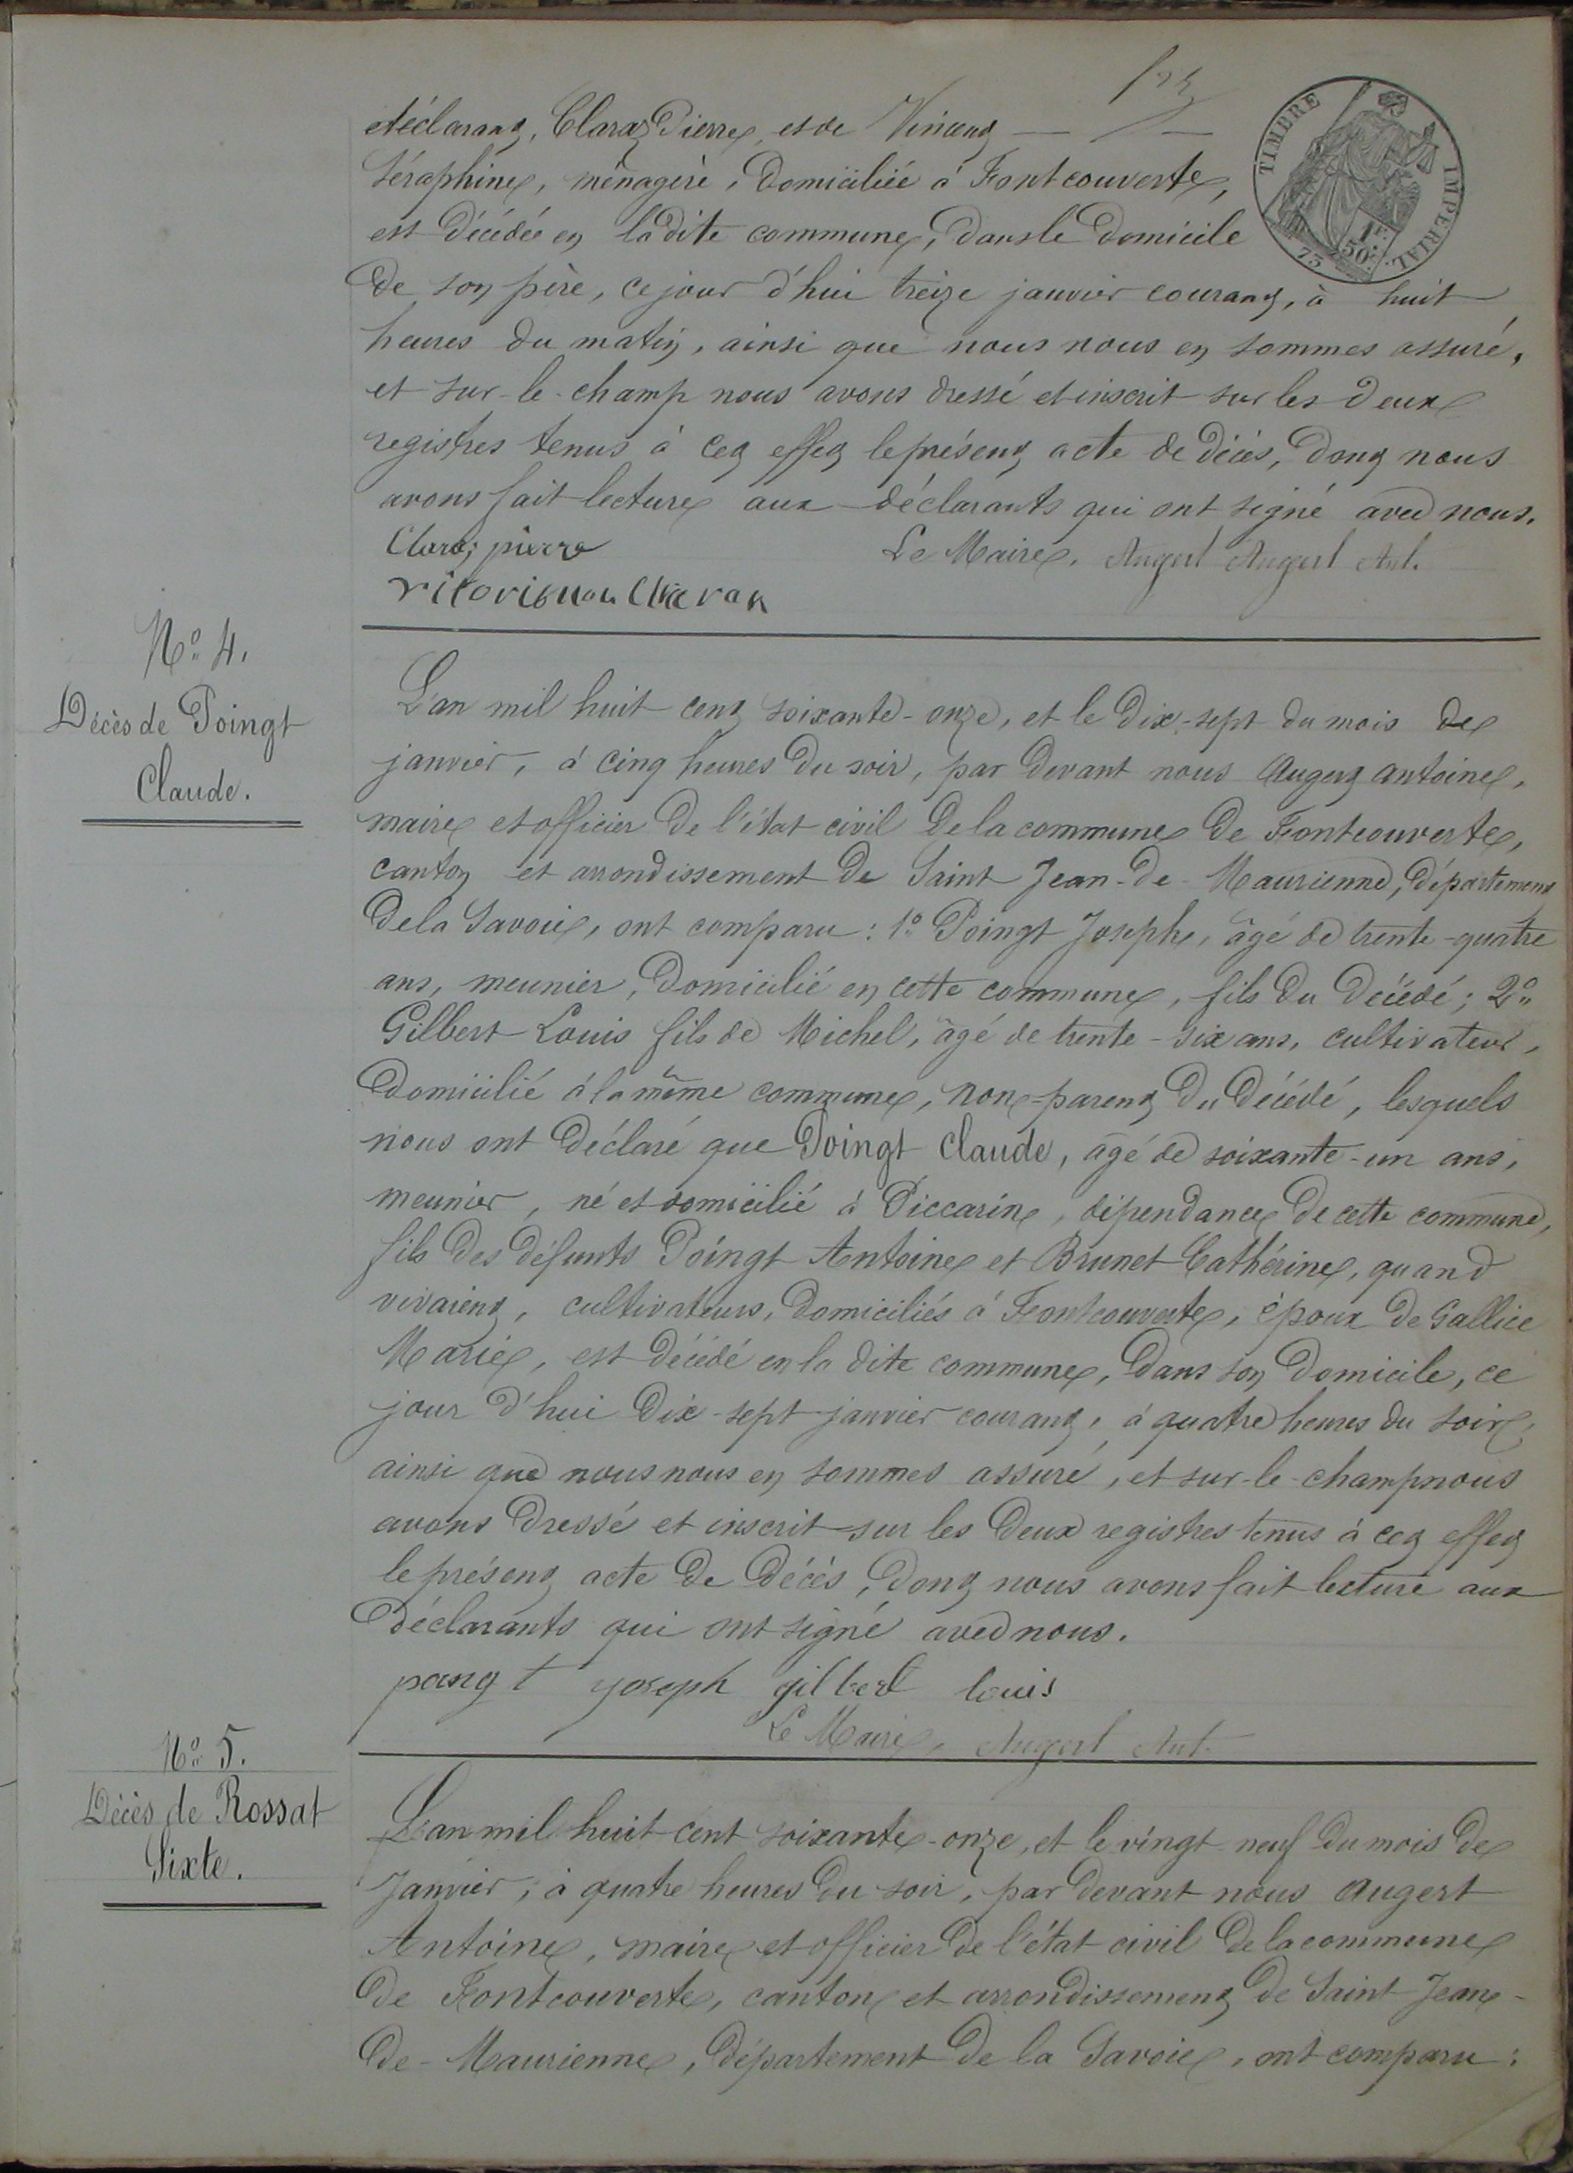 déclarant, Claraz Pierre, et de Vincent
Séraphine, ménagère, domiciliée à Fontcouverte,
TIMBRE IMPERIAL
1F 50C
73
est décédée en la dite commune, dans le domicile
de son père, ce jour d'hui treize janvier courant, à huit
heures du matin, ainsi que nous nous en sommes assuré,
et sur-le-champ nous avons dressé et inscrit sur les deux
registres tenus à cet effet le présent acte de décès, dont nous
avons fait lecture aux déclarants qui ont signé avec nous.
Claraz pierre Le Maire, Augert Augert Ant.
No. 4.
Décès de Poingt
Claude.
L'an mil huit cent soixante-onze, et le dix-sept du mois de
janvier, à cinq heures du soir, par devant nous Augert antoine,
maire et officier de l'état civil de la commune de Fontcouverte,
canton et arrondissement de Saint Jean-de-Maurienne, département
de la Savoie, ont comparu : 1° Poingt Joseph, âgé de trente-quatre
ans, meunier, domicilié en cette commune, fils du décédé ; 2°
Gilbert Louis fils de Michel, âgé de trente-six ans, cultivateur,
domicilié à la même commune, non-parent du décédé, lesquels
nous ont déclaré que Poingt Claude, âgé de soixante-un ans,
meunier, né et domicilié à Piccarin, dépendance de cette commune,
fils des défunts Poingt Antoine et Brunet Cathérine, quand
vivaient, cultivateurs, domiciliés à Fontcouverte, époux de Gallice
Marie, est décédé en la dite commune, dans son domicile, ce
jour d'hui dix-sept janvier courant, à quatre heures du soir,
ainsi que nous nous en sommes assuré, et sur-le-champ nous
avons dressé et inscrit sur les deux registres tenus à cet effet
le présent acte de décès, dont nous avons fait lecture aux
déclarants qui ont signé avec nous.
poingt joseph gilbert louis
Le Maire, Augert Ant.
No. 5.
Décès de Rossat
Sixte.
L'an mil huit cent soixante-onze, et le vingt neuf du mois de
Janvier, à quatre heures du soir, par devant nous Augert
Antoine, maire et officier de l'état civil de la commune
de Fontcouverte, canton et arrondissement de Saint Jean-
de-Maurienne, département de la Savoie, ont comparu :